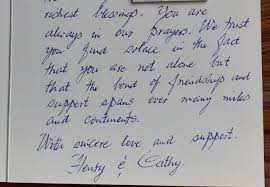 richest blessings. You are
always in our prayers. We trust
you find solace in the fact
that you are not alone but
that the bond of friendship and
support spans over many miles
and continents.
With sincere love and support.
Henry & Cathy.